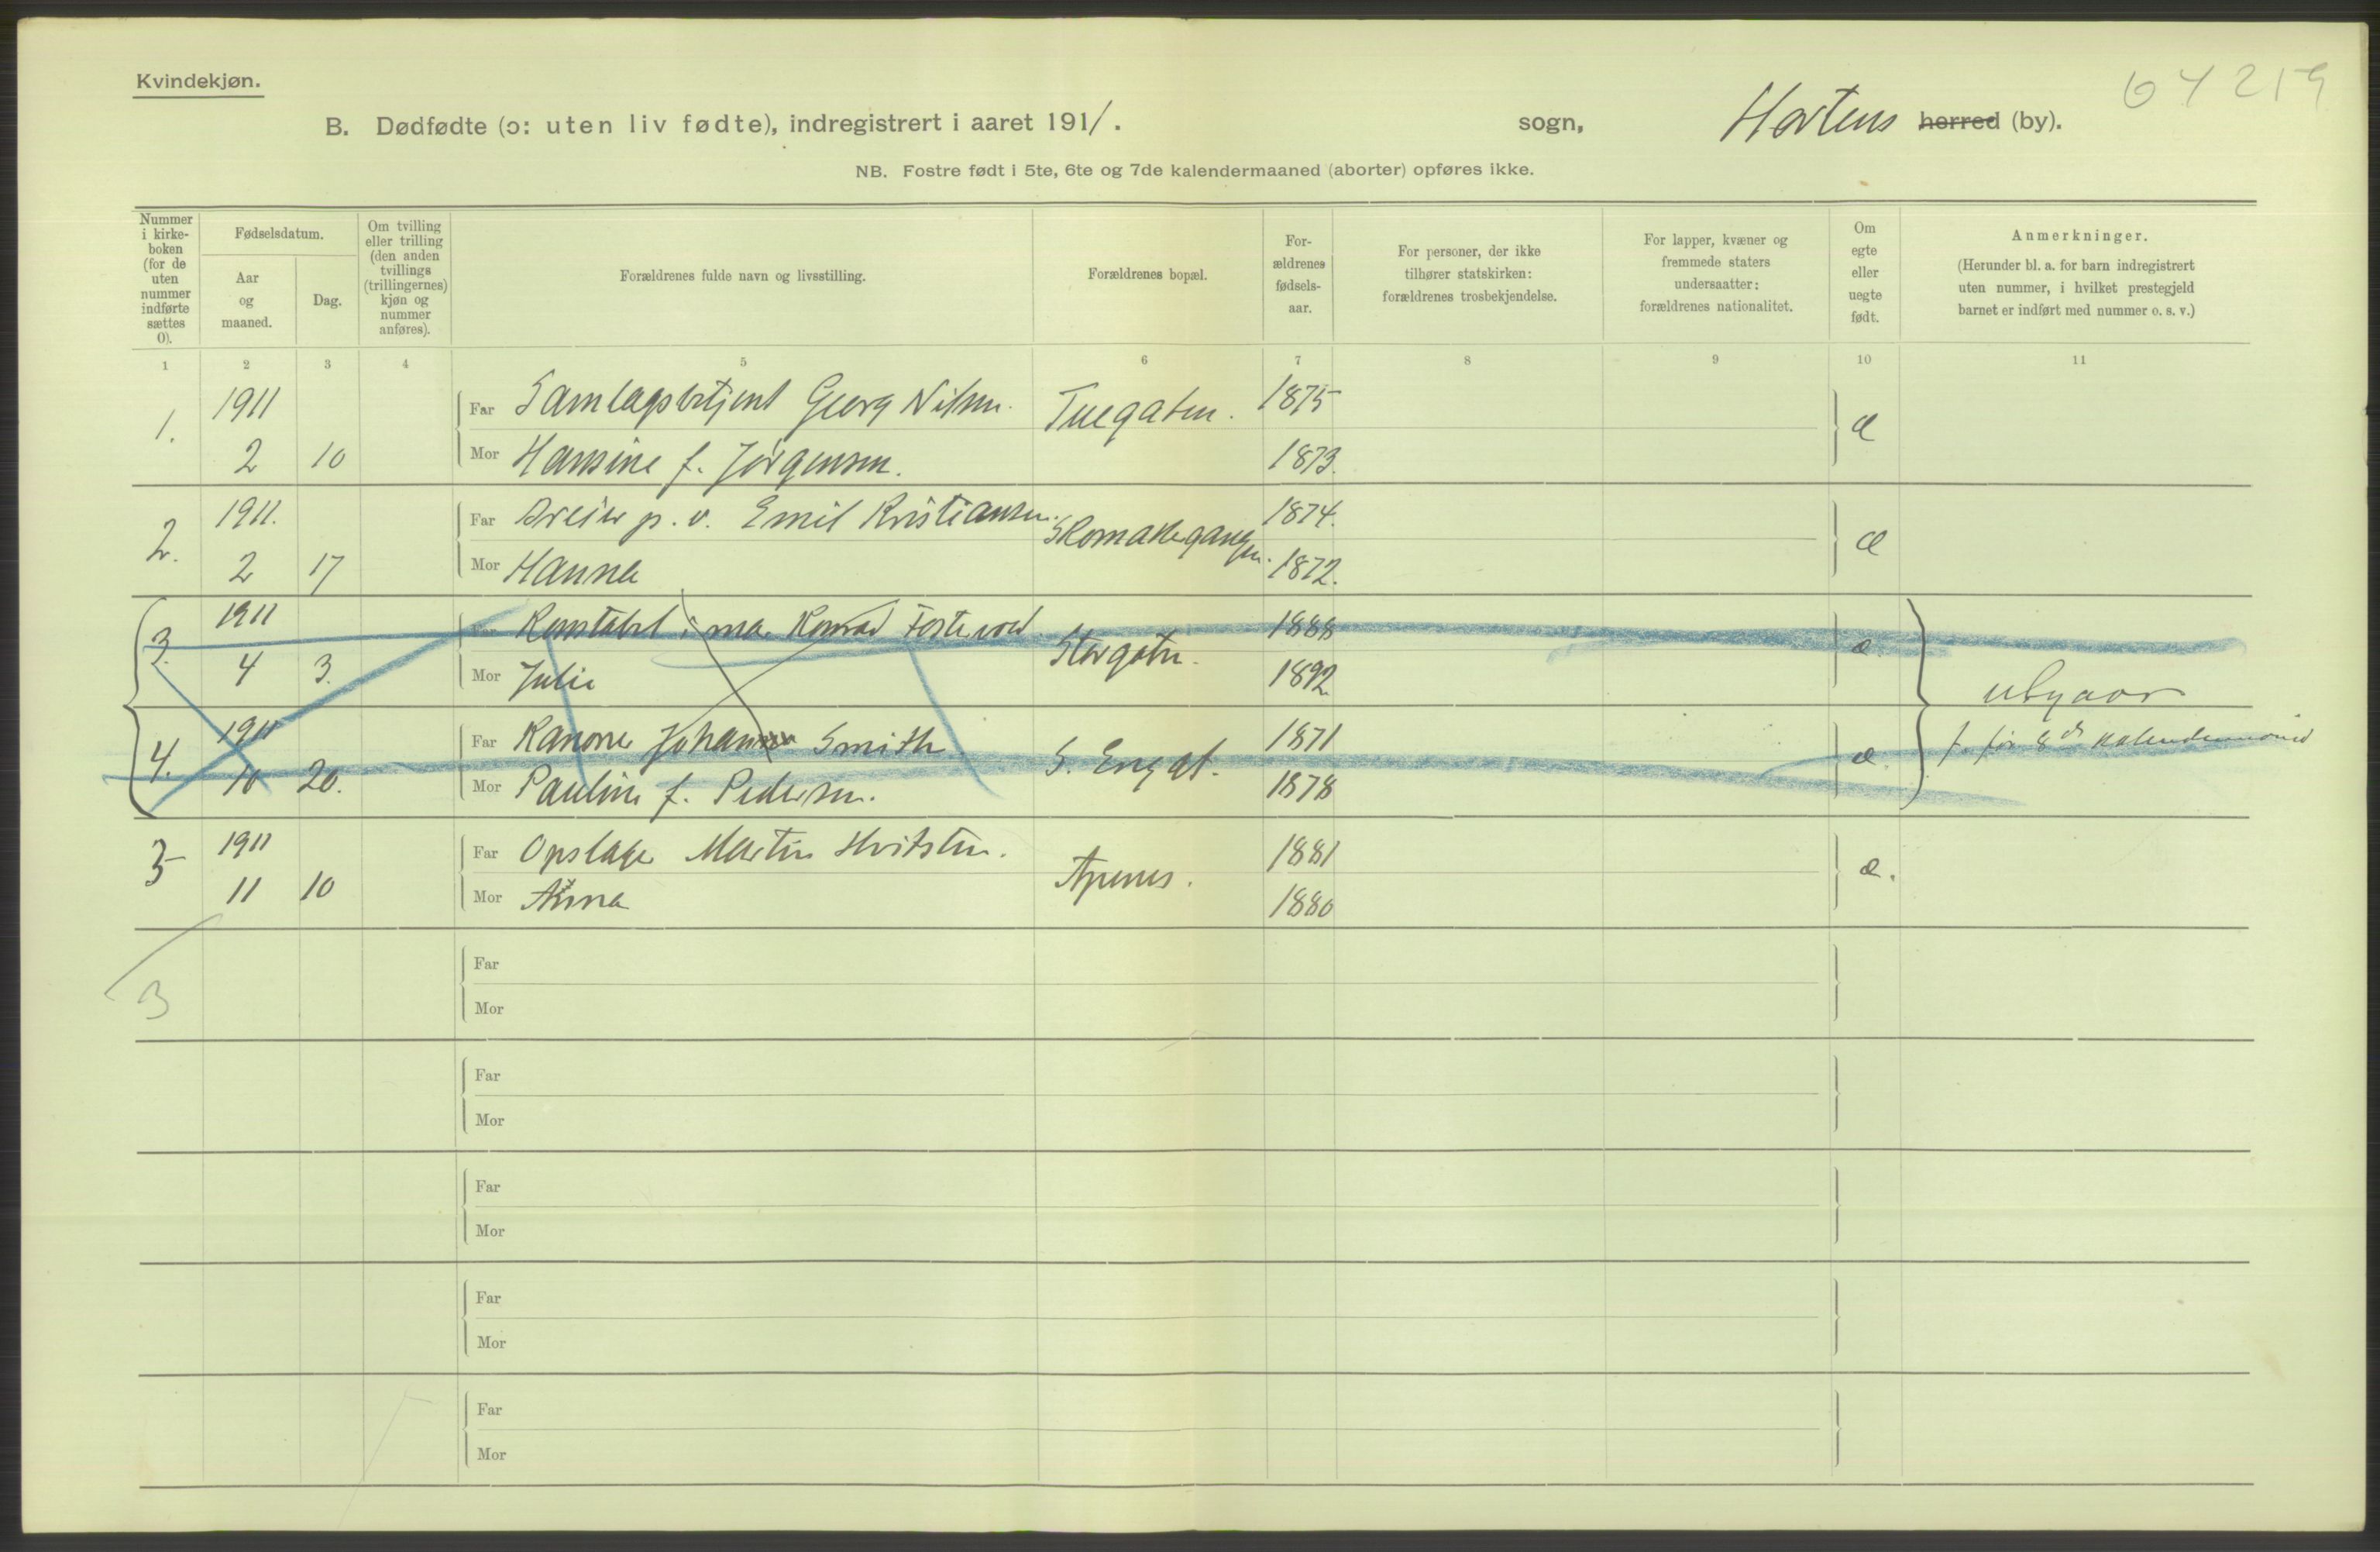 Kvindekjøn.
64 219
B. Dødfødte (ɔ: uten liv fødte), indregistrert i aaret 1911. sogn, Hortens herred (by).
NB. Fostre født i 5te, 6te og 7de kalendermaaned (aborter) opføres ikke.
Nummer i kirke-boken (for de uten nummer indførte sættes 0).
Fødselsdatum.
Aar og maaned.
Dag.
Om tvilling eller trilling (den anden tvillings (trillingernes) kjøn og nummer anføres).
Forældrenes fulde navn og livsstilling.
Forældrenes bopæl.
For-ældrenes fødsels-aar.
For personer, der ikke tilhører statskirken: forældrenes trosbekjendelse.
For lapper, kvæner og fremmede staters undersaatter: forældrenes nationalitet.
Om egte eller uegte født.
Anmerkninger.
(Herunder bl. a. for barn indregistrert uten nummer, i hvilket prestegjeld barnet er indført med nummer o. s. v.)
1 2 3 4 5 6 7 8 9 10 11
1. 1911 Far Samlagsbetjent Georg Nilsen. Tuegaten. 1875 æ
2 10 Mor Hansine f. Jørgensen. 1873.
2. 1911. Far Dreier p. v. Emil Kristiansen. Skomakergangen. 1874. æ
2 17 Mor Hanna 1872.
3. 1911 Far Konstabel i ma. Konrad Storgaten. 1888 æ
4 3. Mor Julie 1892
4. 1911 Far Kanoner Johan Smith S. Engat. 1871 æ. f. før 8de kalendermaaned
10 20. Mor Pauline f. Pedersen. 1878
3 1911 Far Opslager Martin Hvitsten. Apenes. 1881 æ.
11 10 Mor Anna 1880
Far
3
Mor
Far
Mor
Far
Mor
Far
Mor
Far
Mor